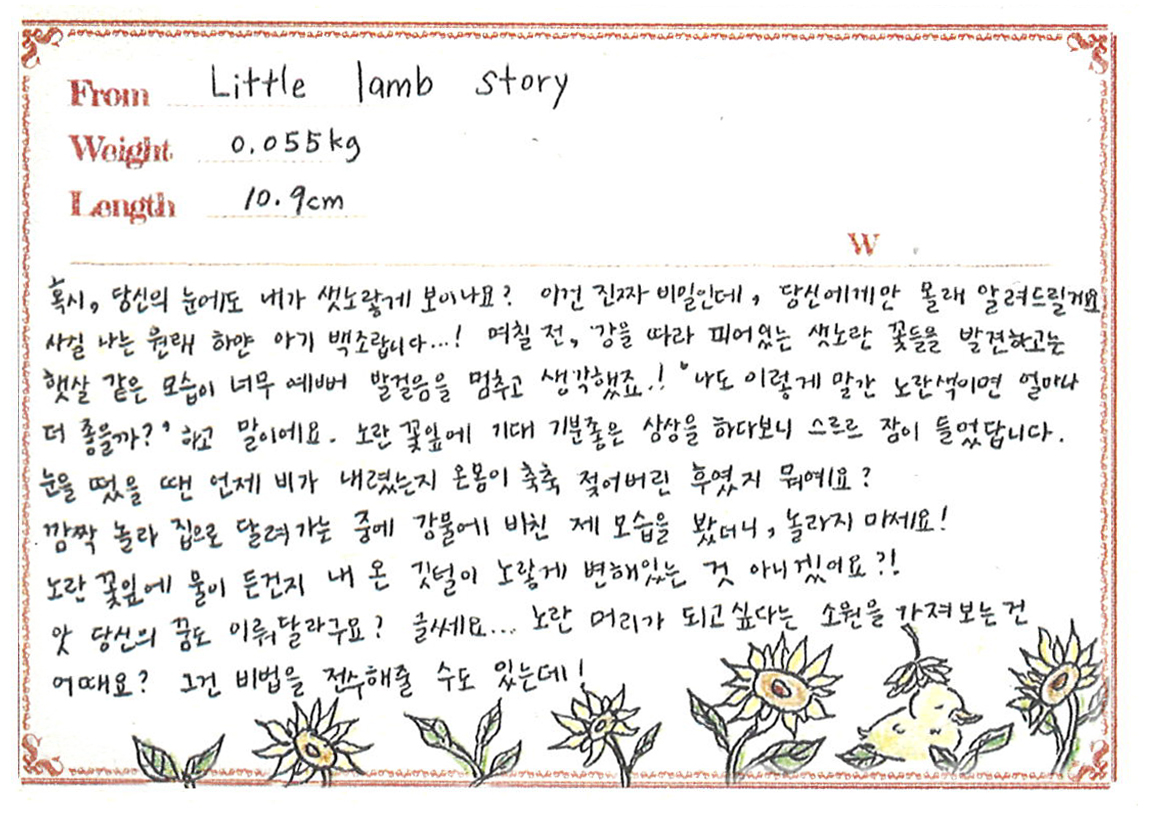 From Little lamb story
Weight 0.055kg
Length 10.9cm
W
혹시, 당신의 눈에도 내가 샛노랗게 보이나요? 이건 진짜 비밀인데, 당신에게만 몰래 알려드릴게요
사실 나는 원래 하얀 아기 백조랍니다...! 며칠 전, 강을 따라 피어있는 샛노란 꽃들을 발견하고는
햇살 같은 모습이 너무 예뻐 발걸음을 멈추고 생각했죠.! '나도 이렇게 말간 노란색이면 얼마나
더 좋을까?' 하고 말이에요. 노란 꽃잎에 기대 기분좋은 상상을 하다보니 스르르 잠이 들었답니다.
눈을 떴을 땐 언제 비가 내렸는지 온몸이 축축 젖어버린 후였지 뭐예요?
깜짝 놀라 집으로 달려가는 중에 강물에 비친 제 모습을 봤더니, 놀라지 마세요!
노란 꽃잎에 물이 든건지 내 온 깃털이 노랗게 변해있는 것 아니겠어요?!
앗 당신의 꿈도 이뤄달라구요? 글쎄요... 노란 머리가 되고싶다는 소원을 가져보는건
어때요? 그건 비법을 전수해줄 수도 있는데!